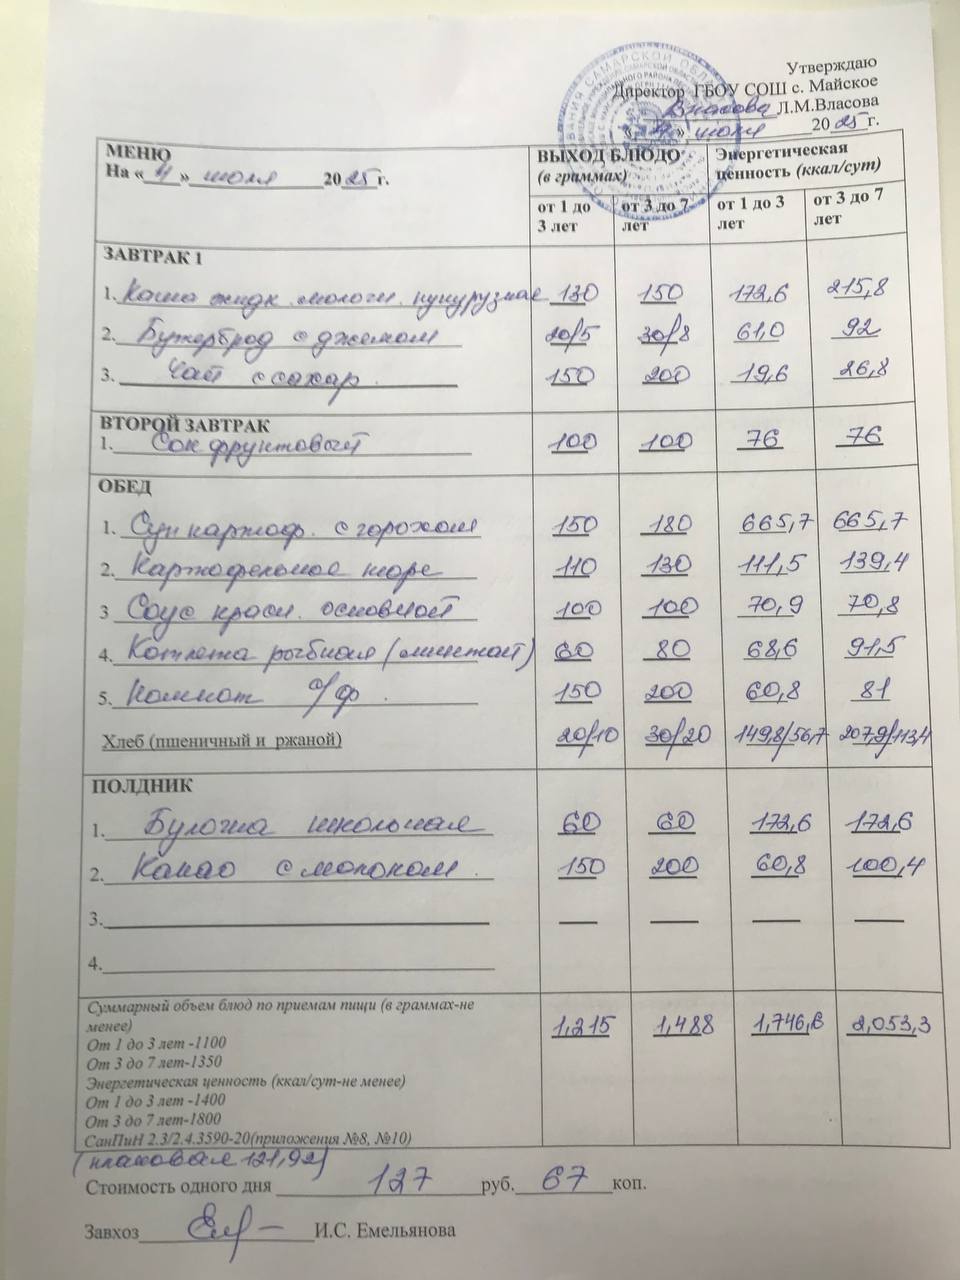 Утверждаю
Директор ГБОУ СОШ с. Майское
Власова Л.М.Власова
«4» июля 2025г.
МЕНЮ
На «4» июля 2025г.
ВЫХОД БЛЮДО
(в граммах)
Энергетическая ценность (ккал/сут)
от 1 до 3 лет от 3 до 7 лет от 1 до 3 лет от 3 до 7 лет
ЗАВТРАК 1
1. Каша жидк. молочн. кукурузная 130 150 172,6 215,8
2. Бутерброд с джемом 20/5 30/8 61,0 92
3. Чай с сахар. 150 200 19,6 26,8
ВТОРОЙ ЗАВТРАК
1. Сок фруктовый 100 100 76 76
ОБЕД
1. Суп картоф. с горохом 150 180 665,7 665,7
2. Картофельное пюре 110 130 111,5 139,4
3 Соус красн. основной 100 100 70,9 70,8
4. Котлета рыбная (минтай) 60 80 68,6 91,5
5. Компот с/ф. 150 200 60,8 81
Хлеб (пшеничный и ржаной) 20/10 30/20 149,8/56,7 207,9/113,4
ПОЛДНИК
1. Булочка школьная 60 60 172,6 172,6
2. Какао с молоком. 150 200 60,8 100,4
3. — — — —
4.
Суммарный объем блюд по приемам пищи (в граммах-не
менее) 1,215 1,488 1,746,6 2,053,3
От 1 до 3 лет -1100
От 3 до 7 лет-1350
Энергетическая ценность (ккал/сут-не менее)
От 1 до 3 лет -1400
От 3 до 7 лет-1800
СанПиН 2.3/2.4.3590-20(приложения №8, №10)
(плановая 121,92)
Стоимость одного дня 127 руб. 67 коп.
Завхоз И.С. Емельянова